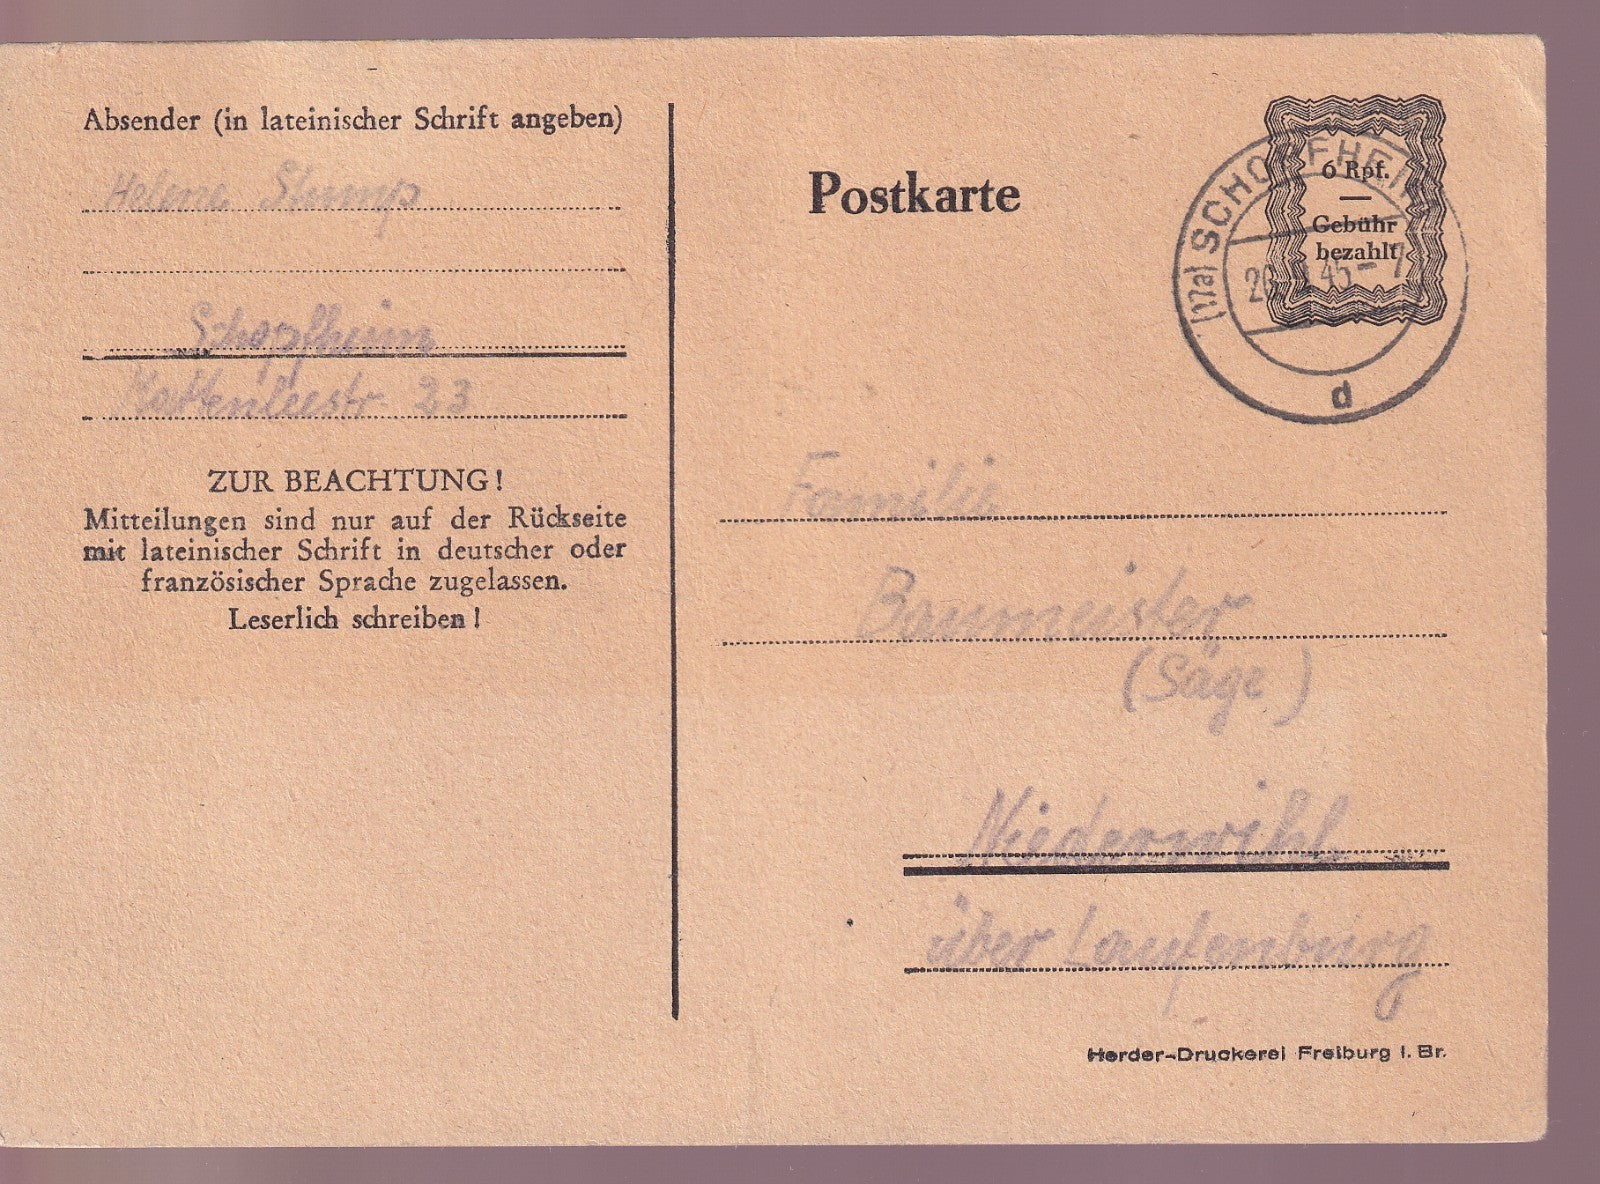 Absender (in lateinischer Schrift angeben)
Helene Stump
Schopfheim
Mattenleestr 23
ZUR BEACHTUNG!
Mitteilungen sind nur auf der Rückseite
mit lateinischer Schrift in deutscher oder
französischer Sprache zugelassen.
Leserlich schreiben!
Postkarte
6 Rpf.
Gebühr
bezahlt
(17a) SCHOPFHEIM
45-7
d
Familie
Baumeister
(Säge)
Niederwihl
über Laufenburg
Herder-Druckerei Freiburg i. Br.